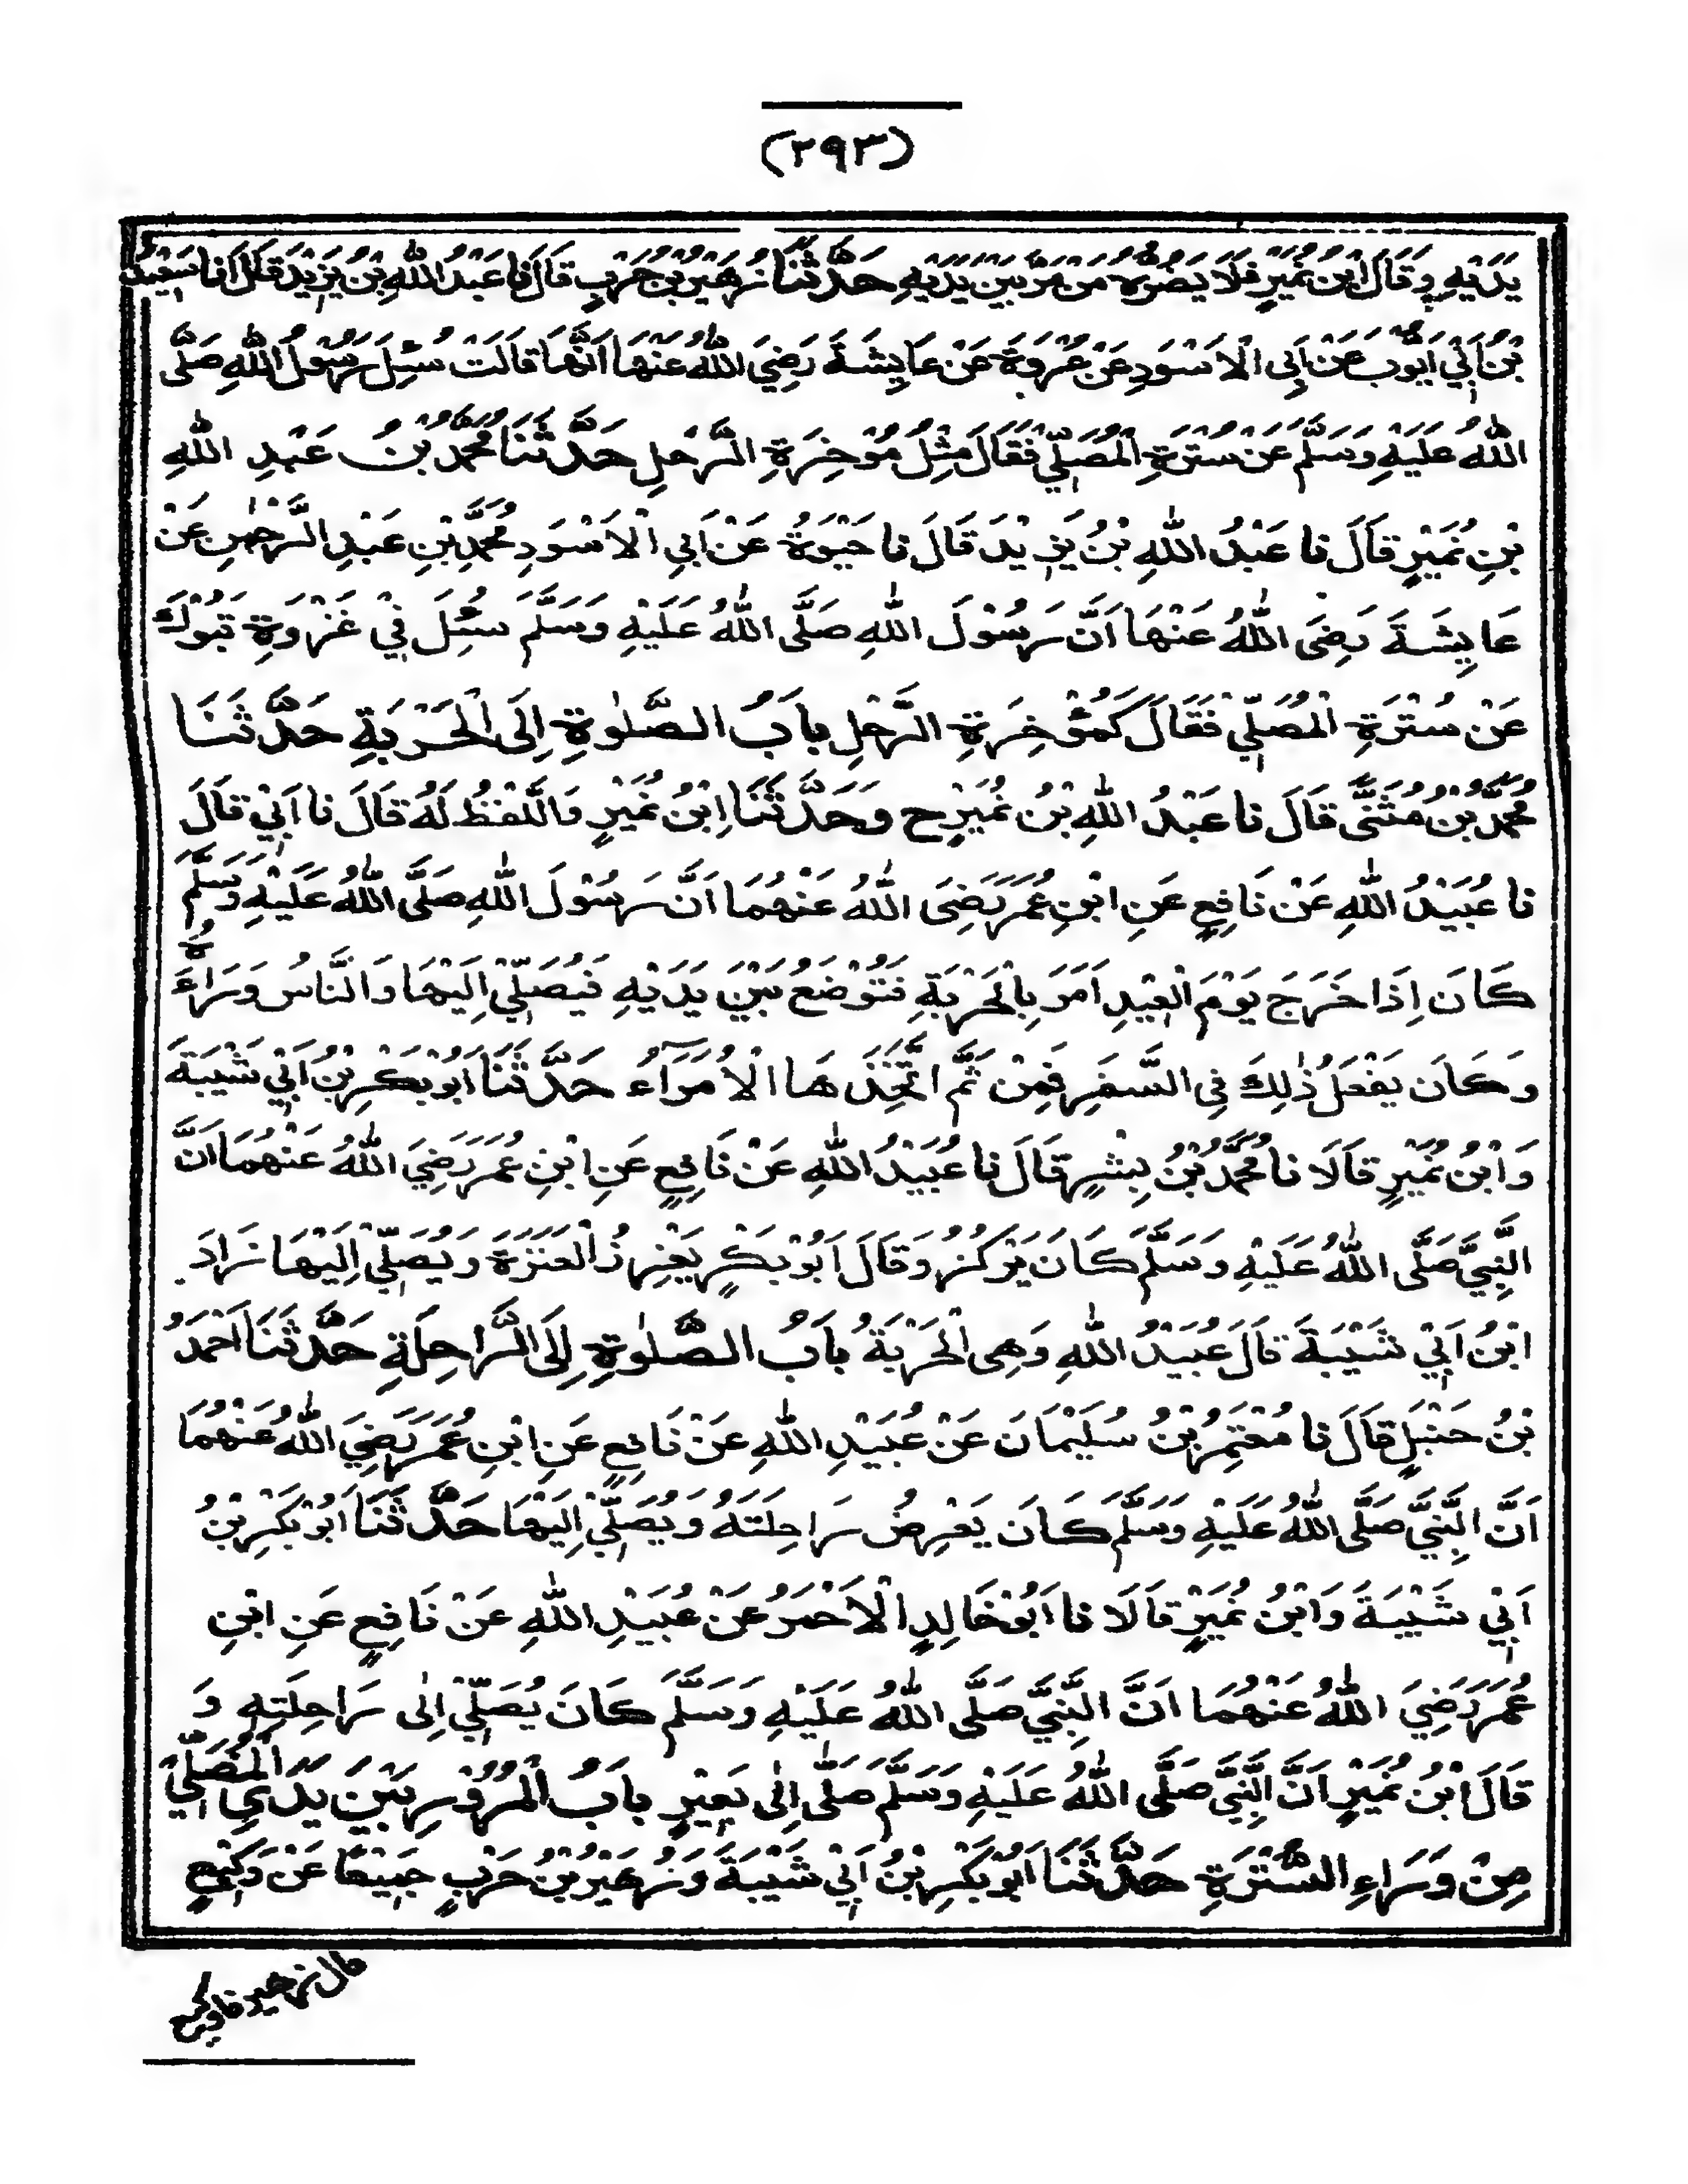 (٢٩٣)
يَدَيْهِ وَقَالَ ابْنُ نُمَيْرٍ فَلَا يَضُرُّهُ مَنْ مَرَّ بَيْنَ يَدَيْهِ حَدَّثَنَا زُهَيْرُ بْنُ حَرْبٍ قَالَ نَا عَبْدُ اللّٰهِ بْنُ يَزِيْدَ قَالَ اَنَا سَعِيْدُ
بْنُ اَبِيْ اَيُّوْبَ عَنْ اَبِى الْاَسْوَدِ عَنْ عُرْوَةَ عَنْ عَايِشَةَ رَضِيَ اللّٰهُ عَنْهَا اَنَّهَا قَالَتْ سُئِلَ رَسُوْلُ اللّٰهِ صَلَّى
اللّٰهُ عَلَيْهِ وَسَلَّمَ عَنْ سُتْرَةِ الْمُصَلِّيْ فَقَالَ مِثْلُ مُوْخِرَةِ الرَّحْلِ حَدَّثَنَا مُحَمَّدُ بْنُ عَبْدِ اللّٰهِ
بْنِ نُمَيْرٍ قَالَ نَا عَبْدُ اللّٰهِ بْنُ يَزِيْدَ قَالَ نَا حَيْوَةُ عَنْ اَبِي الْاَسْوَدِ مُحَمَّدِ بْنِ عَبْدِ الرَّحْمٰنِ عَنْ
عَايِشَةَ رَضِىَ اللّٰهُ عَنْهَا اَنَّ رَسُوْلَ اللّٰهِ صَلَّى اللّٰهُ عَلَيْهِ وَسَلَّمَ سُئِلَ فِيْ غَزْوَةِ تَبُوْكَ
عَنْ سُتْرَةِ الْمُصَلِّيْ فَقَالَ كَمُؤْخِرَةِ الرَّحْلِ بَابُ الصَّلٰوةِ اِلَى الْحَرْبَةِ حَدَّثَنَا
مُحَمَّدُ بْنُ مُثَنَّى قَالَ نَا عَبْدُ اللّٰهِ بْنُ نُمَيْرٍ ح وَحَدَّثَنَا اِبْنُ نُمَيْرٍ وَاللَّفْظُ لَهُ قَالَ نَا اَبِيْ قَالَ
نَا عُبَيْدُ اللّٰهِ عَنْ نَافِعٍ عَنِ ابْنِ عُمَرَ رَضِىَ اللّٰهُ عَنْهُمَا اَنَّ رَسُوْلَ اللّٰهِ صَلَّى اللّٰهُ عَلَيْهِ وَسَلَّمَ
كَانَ اِذَا خَرَجَ يَوْمَ الْعِيْدِ اَمَرَ بِالْحَرْبَةِ فَتُوْضَعُ بَيْنَ يَدَيْهِ فَيُصَلِّيْ اِلَيْهَا وَالنَّاسُ وَرَاءَهُ
وَكَانَ يَفْعَلُ ذٰلِكَ فِى السَّفَرِ فَمِنْ ثَمَّ اتَّخَذَهَا الْاُمَرَآءُ حَدَّثَنَا اَبُوْ بَكْرِ بْنُ اَبِيْ شَيْبَةَ
وَابْنُ نُمَيْرٍ قَالَا نَا مُحَمَّدُ بْنُ بِشْرٍ قَالَ نَا عُبَيْدُ اللّٰهِ عَنْ نَافِعٍ عَنِ ابْنِ عُمَرَ رَضِيَ اللّٰهُ عَنْهُمَا اَنَّ
النَّبِيَّ صَلَّى اللّٰهُ عَلَيْهِ وَسَلَّمَ كَانَ يَرْكُزُ وَقَالَ اَبُوْ بَكْرٍ يَغْرِزُ الْعَنَزَةَ وَيُصَلِّيْ اِلَيْهَا زَادَ
ابْنُ اَبِيْ شَيْبَةَ قَالَ عُبَيْدُ اللّٰهِ وَهِىَ الْحَرْبَةُ بَابُ الصَّلٰوةِ اِلَى الرَّاحِلَةِ حَدَّثَنَا اَحْمَدُ
بْنُ حَنْبَلٍ قَالَ نَا مُعْتَمِرُ بْنُ سُلَيْمَانَ عَنْ عُبَيْدِ اللّٰهِ عَنْ نَافِعٍ عَنِ ابْنِ عُمَرَ رَضِيَ اللّٰهُ عَنْهُمَا
اَنَّ النَّبِيَّ صَلَّى اللّٰهُ عَلَيْهِ وَسَلَّمَ كَانَ يَعْرِضُ رَاحِلَتَهُ وَيُصَلِّيْ اِلَيْهَا حَدَّثَنَا اَبُوْ بَكْرِ بْنُ
اَبِيْ شَيْبَةَ وَابْنُ نُمَيْرٍ قَالَا نَا اَبُوْ خَالِدٍ الْاَحْمَرُ عَنْ عُبَيْدِ اللّٰهِ عَنْ نَافِعٍ عَنِ ابْنِ
عُمَرَ رَضِيَ اللّٰهُ عَنْهُمَا اَنَّ النَّبِيَّ صَلَّى اللّٰهُ عَلَيْهِ وَسَلَّمَ كَانَ يُصَلِّيْ اِلٰى رَاحِلَتِهِ وَ
قَالَ ابْنُ نُمَيْرٍ اَنَّ النَّبِيَّ صَلَّى اللّٰهُ عَلَيْهِ وَسَلَّمَ صَلّٰى اِلٰى بَعِيْرٍ بَابُ الْمُرُوْرِ بَيْنَ يَدَيِ الْمُصَلِّيْ
مِنْ وَرَاءِ السُّتْرَةِ حَدَّثَنَا اَبُوْ بَكْرِ بْنُ اَبِيْ شَيْبَةَ وَزُهَيْرُ بْنُ حَرْبٍ جَمِيْعًا عَنْ وَكِيْعٍ
قال زهير نا وكيع